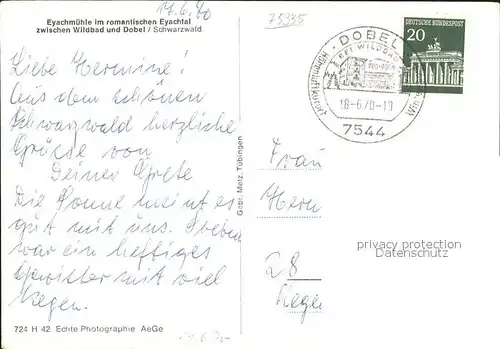 14.6.70
75335
Eyachmühle im romantischen Eyachtal
zwischen Wildbad und Dobel / Schwarzwald
DEUTSCHE BUNDESPOST
20
DOBEL
BEI WILDBAD
18-6.70-19
7544
Liebe Hermine!
Aus dem schönen
Schwarzwald herzliche
Grüsse von
Deiner Grete
Die Sonne meint es
gut mit uns. Soeben
war ein heftiges
Gewitter mit viel
Regen.
Gebr. Metz, Tübingen
Frau
Herm
28
Rege
privacy protection
Datenschutz
724 H 42 Echte Photographie AeGe